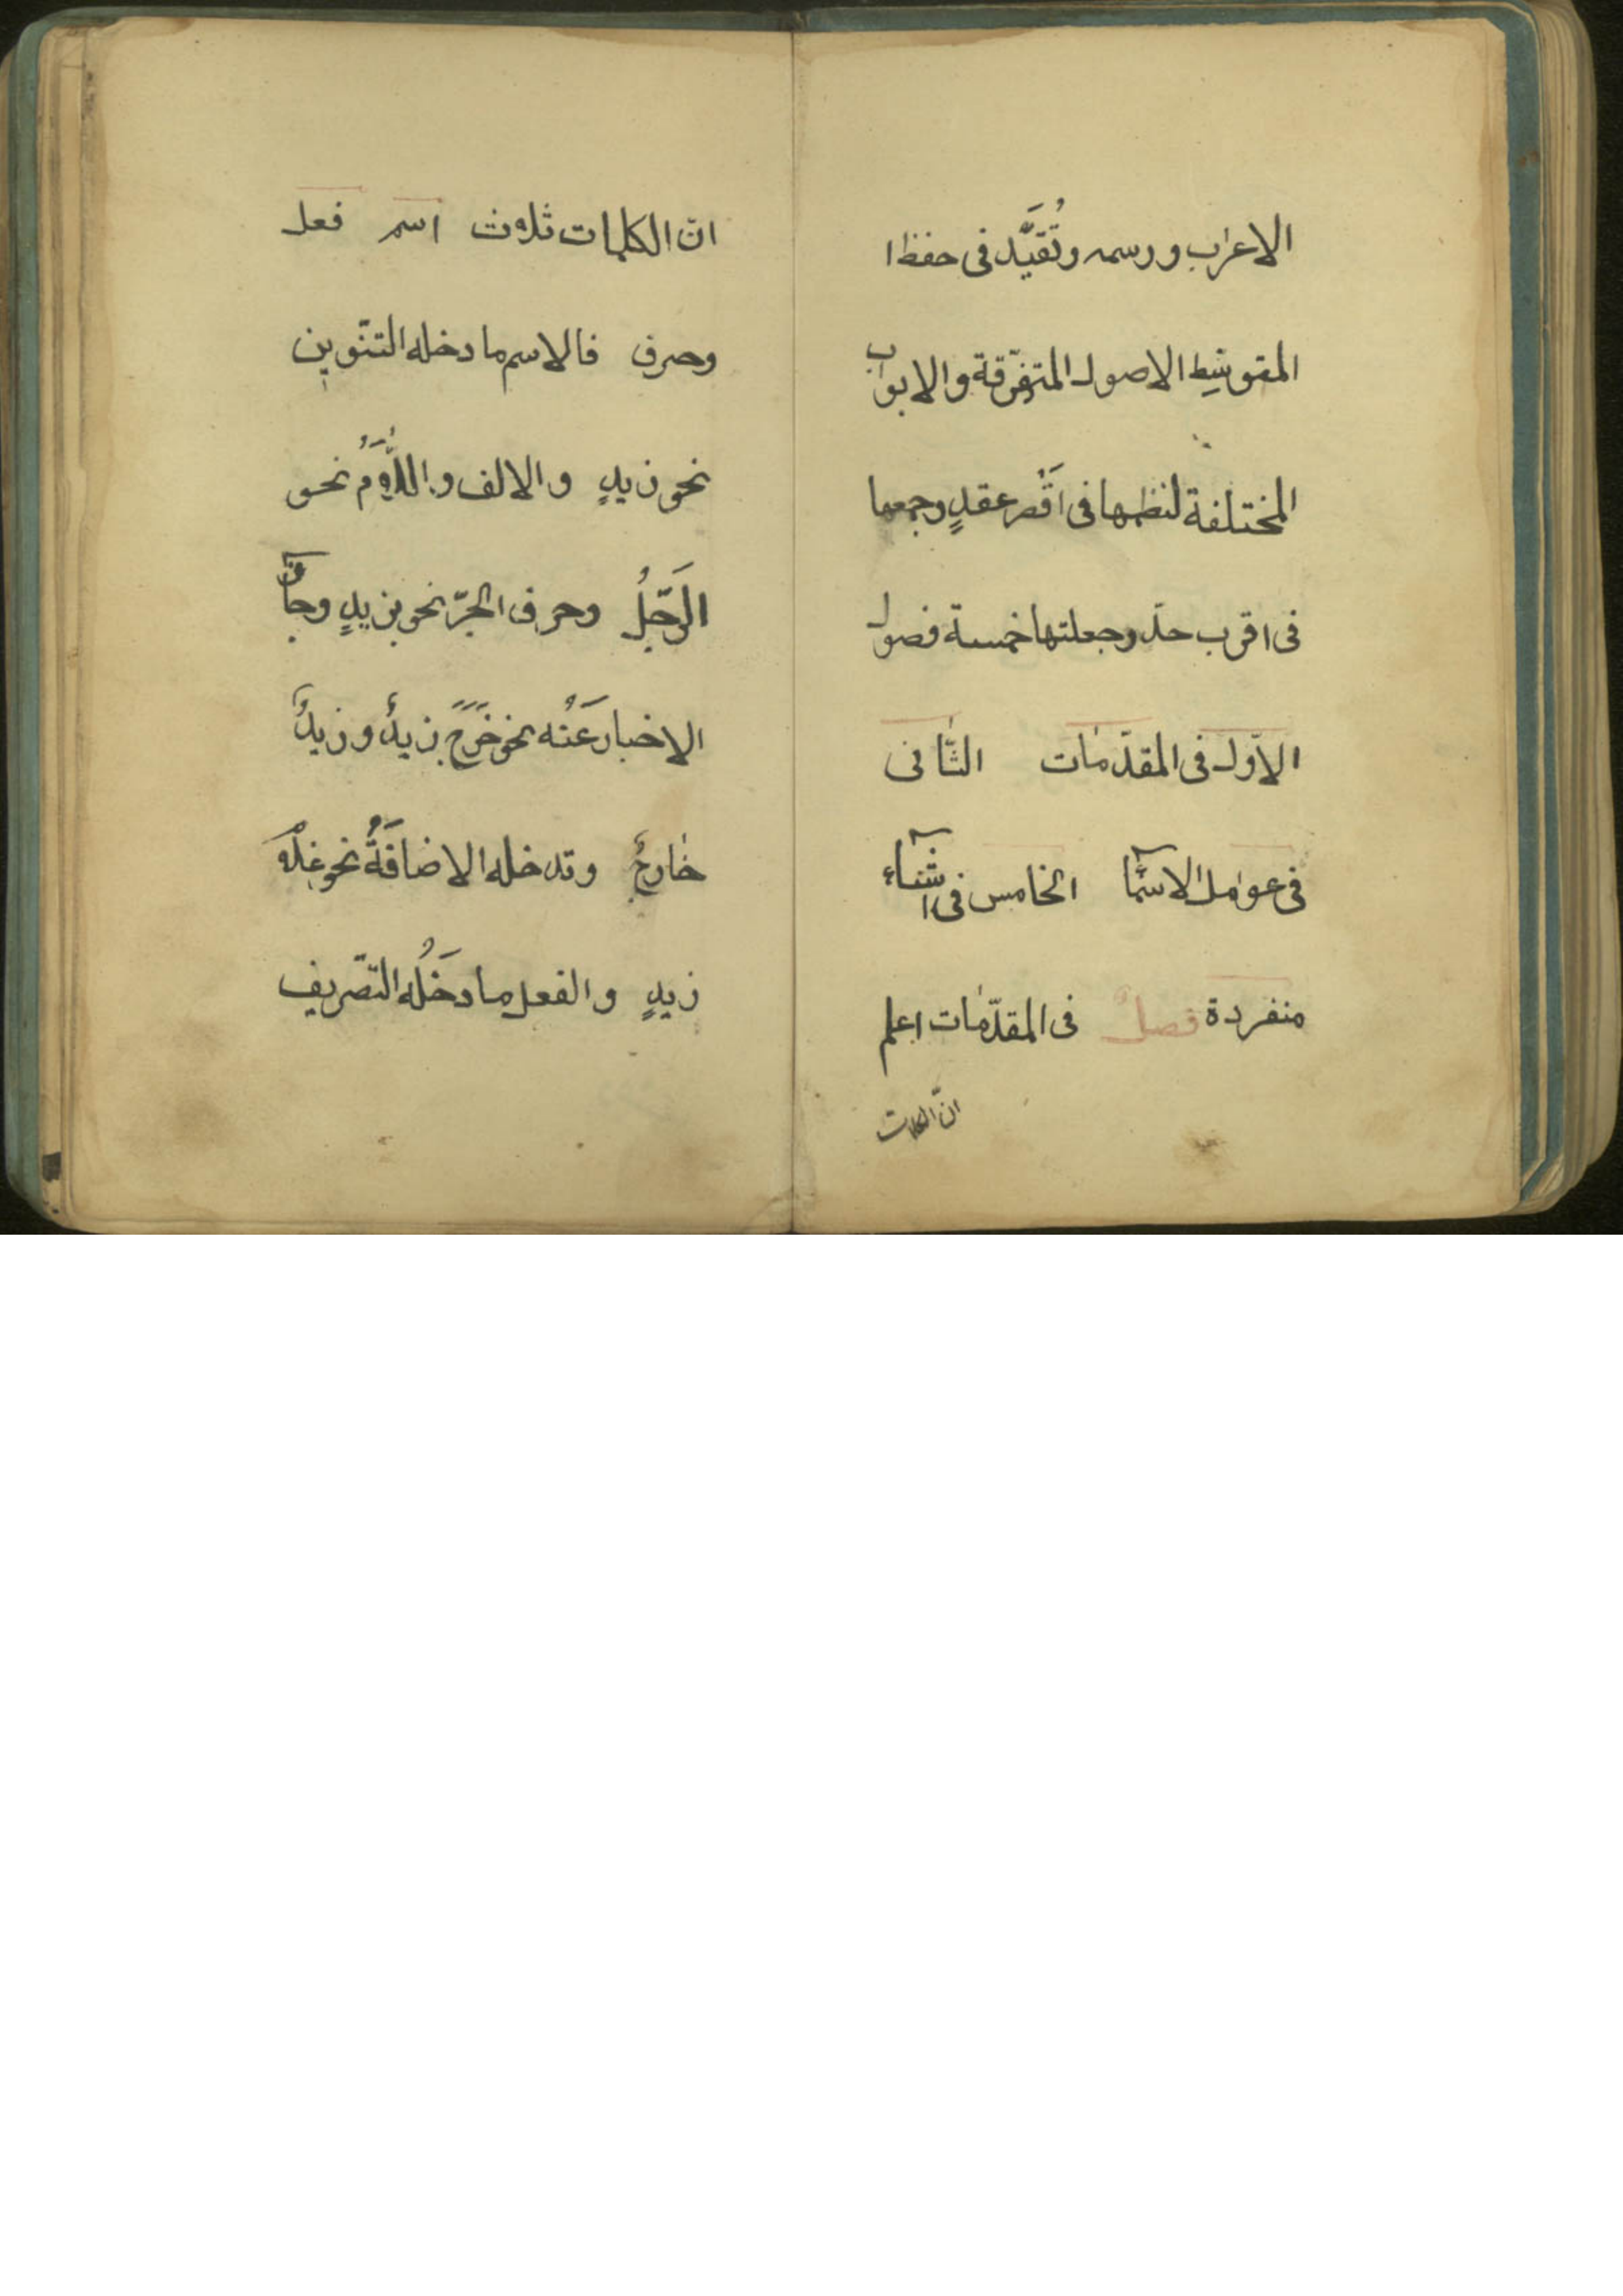 الاعراب ورسمه وتُقَيَّد فى حفظ ا
المتوسّط الاصول المتفرّقة والابواب
المختلفة لنظمها فى اَقْصر عقدٍ وجمعها
فى اقرب حدّ وجعلتها خمسة فصول
الاوّل فى المقدّمات الثّانى
فى عوامل الاسمآ الخامس فى اشيآء
منفردة فصلٌ فى المقدّمات اعلم
انّ الكلمات
انّ الكلمات ثلوث اسم فعل
وحرف فالاسم ما دخله التّنوين
نحو زيدٍ والالف واللَّومُ نحو
الرَّجلُ وحرف الجرّ نحو بزيدٍ وجاز
الاخبار عَنْه نحو خَرَجَ زيدٌ وزيدٌ
خارجٌ وتدخله الاضافَةُ نحو غلوم
زيدٍ والفعل ما دخَلُه التّصريف